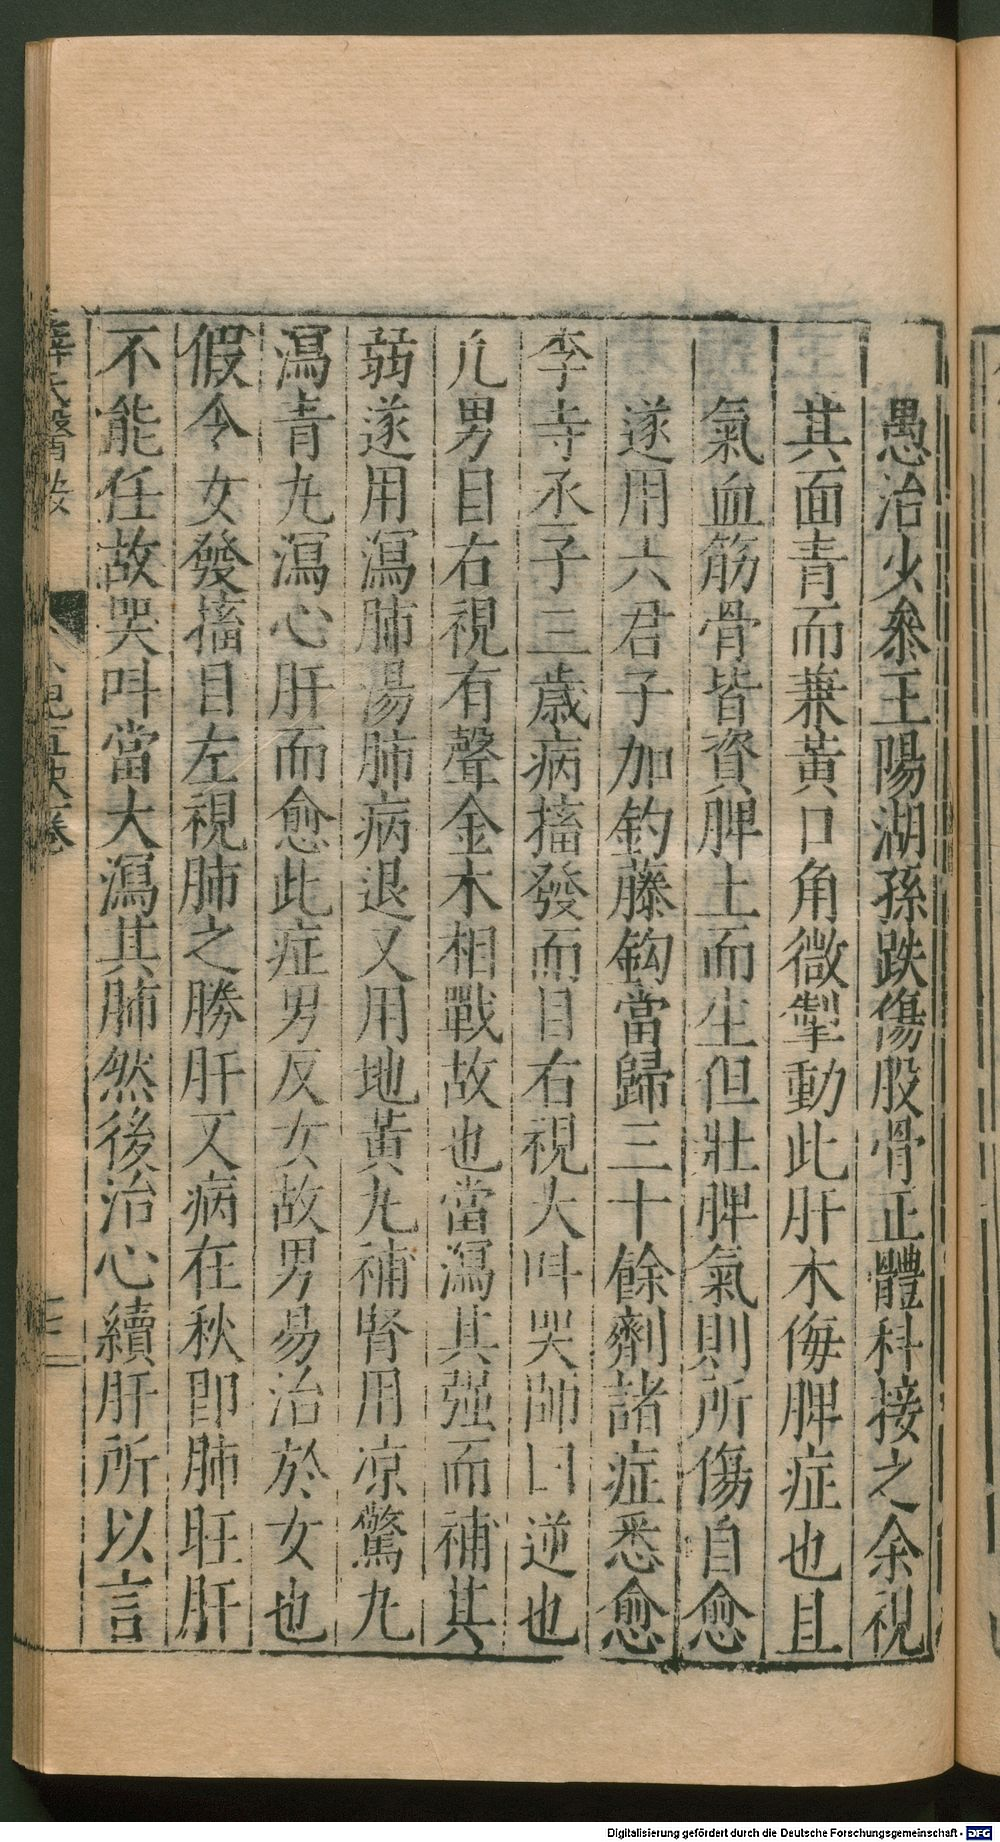 愚治少叅王陽湖孫跌傷股骨正體科接之余視
其面青而兼黃口角微掣動此肝木侮脾症也且
氣血筋骨皆資脾土而生但壯脾氣則所傷自愈
遂用六君子加釣藤鈎當歸三十餘劑諸症悉愈
李寺丞子三歲病搐發而目右視大呌哭師曰逆也
凢男目右視有聲金木相戰故也當瀉其强而補其
弱遂用瀉肺湯肺病退又用地黃九補腎用凉驚九
瀉青九瀉心肝而愈此症男反女故男易治於女也
假令女發搐目左視肺之勝肝又病在秋卽肺旺肝
不能任故哭呌當大瀉其肺然後治心續肝所以言
薛氏醫按
Digitalisierung gefördert durch die Deutsche Forschungsgemeinschaft - DFG